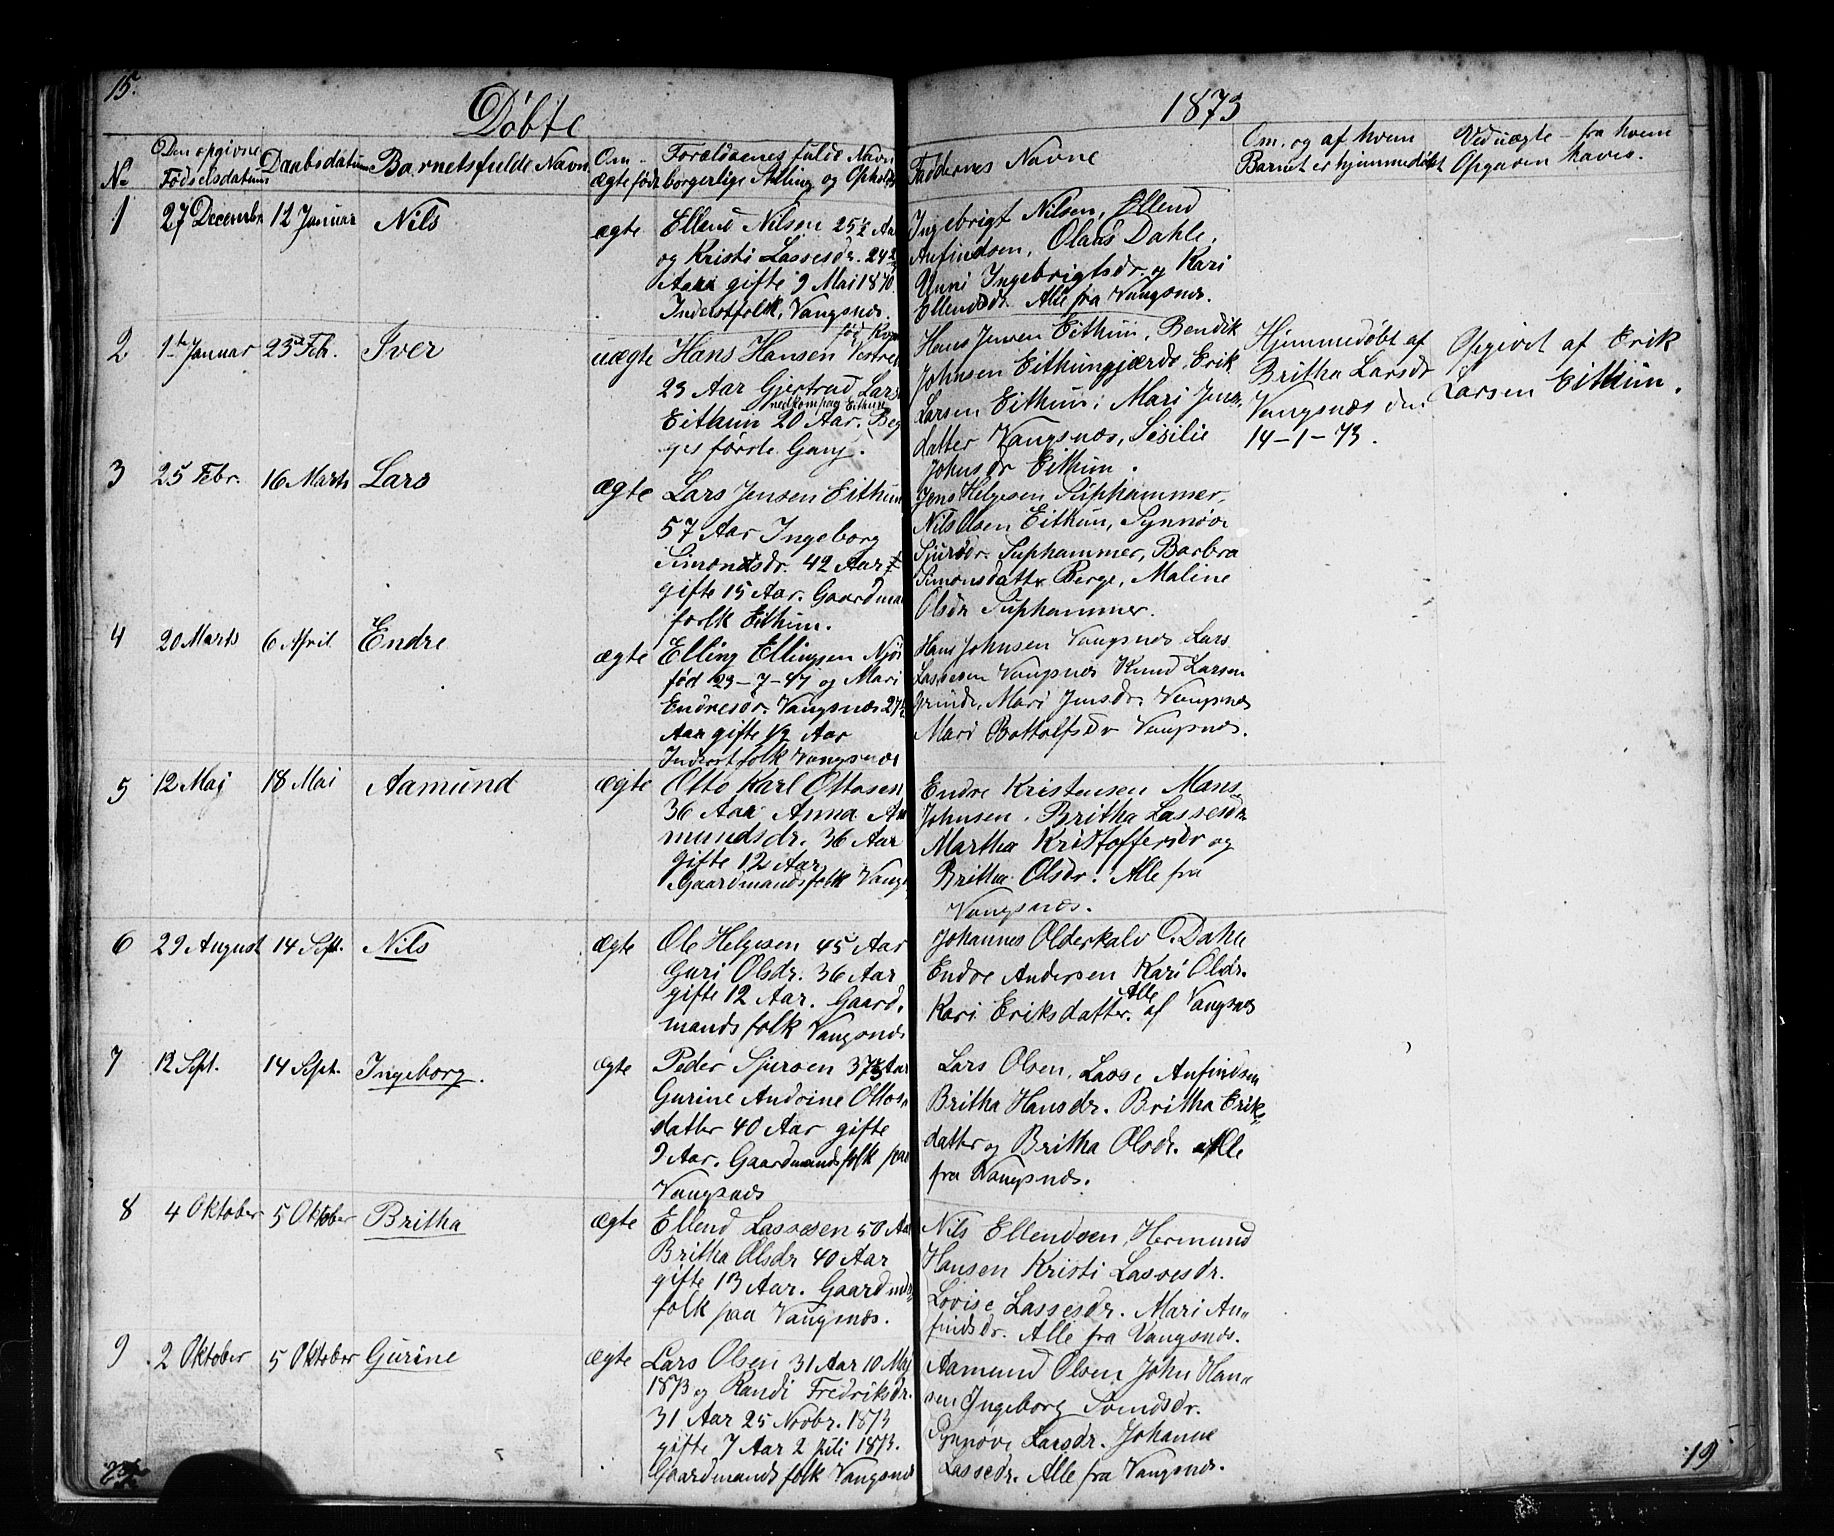 15.
Døbte
1873
No
Den opgivne Fødselsdatum
Daabsdatum
Barnets fulde Navn
Om ægte født
Forældrenes fulde Navn
borgerlige Stilling og Opholds
Faddernes Navne
Om, og af hvem
Barnet er hjemmedøbt
Ved uægte - fra hvem
Opgaven haves.
1 27 Decembr 12 Januar Nils ægte
Ellend Nilsen 25½ Aar
og Kristi Lassesdr. 24½
Aar gifte 9 Mai 1870.
Inderstfolk, Vangsnæs.
Ingebrigt Nilsen, Ellend
Anfindsen, Olaus Dahle,
Unni Ingebrigtsdr. og Kari
Ellendsdr. Alle fra Vangsnæs.
2 1ste Januar 23 Feb. Iver uægte
Hans Hansen
23 Aar Gjertrud Lars
Eithun 20 Aar. Beg
ges første Gang.
Hans Jensen Eithun, Bendik
Johnsen Eithungjærde, Erik
Larsen Eithun, Mari Jens
datter Vangsnæs, Sisilie
Johnsdr Eithun.
Hjemmedøbt af
Britha Larsdr
Vangsnæs den
14-1-73.
Opgivet af Erik
Larsen Eithun.
3 25 Febr. 16 Marts Lars ægte
Lars Jensen Eithun
57 Aar Ingeborg
Simonsdr. 42 Aar
gifte 15 Aar. Gaardman
folk Eithun.
Jens Helgesen Tuphammer,
Nils Olsen Eithun, Synnøve
Sjursdr. Tuphammer, Barbra
Simonsdattr Berge, Maline
Olsdr Tuphammer.
4 20 Marts 6 April Endre ægte
Elling Ellingsen Njøs
født 23-7-47 og Mari
Endresdr. Vangsnæs 27½
Aar gifte ½ Aar
Inderstfolk Vangsnæs
Hans Johnsen Vangsnæs Lars
Lassesen Vangsnæs Knud Larsen
Grinde, Mari Jensdr. Vangsnæs
Mari Bottolfsdr Vangsnæs.
5 12 Mai 18 Mai Aamund ægte
Otto Karl Ottosen
36 Aar Anna Aa
mundsdr. 36 Aar
gifte 12 Aar
Gaardmandsfolk Vangs
Endre Kristensen Mons
Johnsen. Britha Lassesdr
Martha Kristoffersdr og
Britha Olsdr. Alle fra
Vangsnæs.
6 29 August 14 Sept. Nils ægte
Ole Helgesen 45 Aar
Guri Olsdr. 36 Aar
gifte 12 Aar. Gaard-
mandsfolk Vangsnæs
Johannes Olderkalv O. Dahle
Endre Andersen Kari Olsdr.
Kari Eriksdatter. Alle af Vangsnæs
7 12 Sept. 14 Sept. Ingeborg. ægte
Peder Sjursen 37½ Aar
Gurine Andrine Ottos-
datter 40 Aar gifte
9 Aar. Gaardmandsfolk paa
Vangsnæs
Lars Olsen, Lasse Anfindsen
Britha Hansdr. Britha Erik-
datter og Britha Olsdr. Alle
fra Vangsnæs.
8 4 Oktober 5 Oktober Britha ægte
Ellend Lassesen 50 Aar
Britha Olsdr 40 Aar
gifte 13 Aar. Gaardmands-
folk paa Vangsnæs.
Nils Ellendsen, Hermund
Hansen Kristi Lassesdr.
Lovise Lassesdr. Mari An-
findsdr. Alle fra Vangsnæs.
9 2 Oktober 5 Oktober Gurine ægte
Lars Olsen 31 Aar 10 Maj
1873 og Randi Fredriksdr.
31 Aar 25 Novbr. 1873
gifte 7 Aar 2 Juli 1873.
Gaardmandsfolk Vangsnæs
Aamund Olsen John Han-
sen Ingeborg Svendsdr.
Synnøve Larsdr. Johanne
Lassedr. Alle fra Vangsnæs.
19